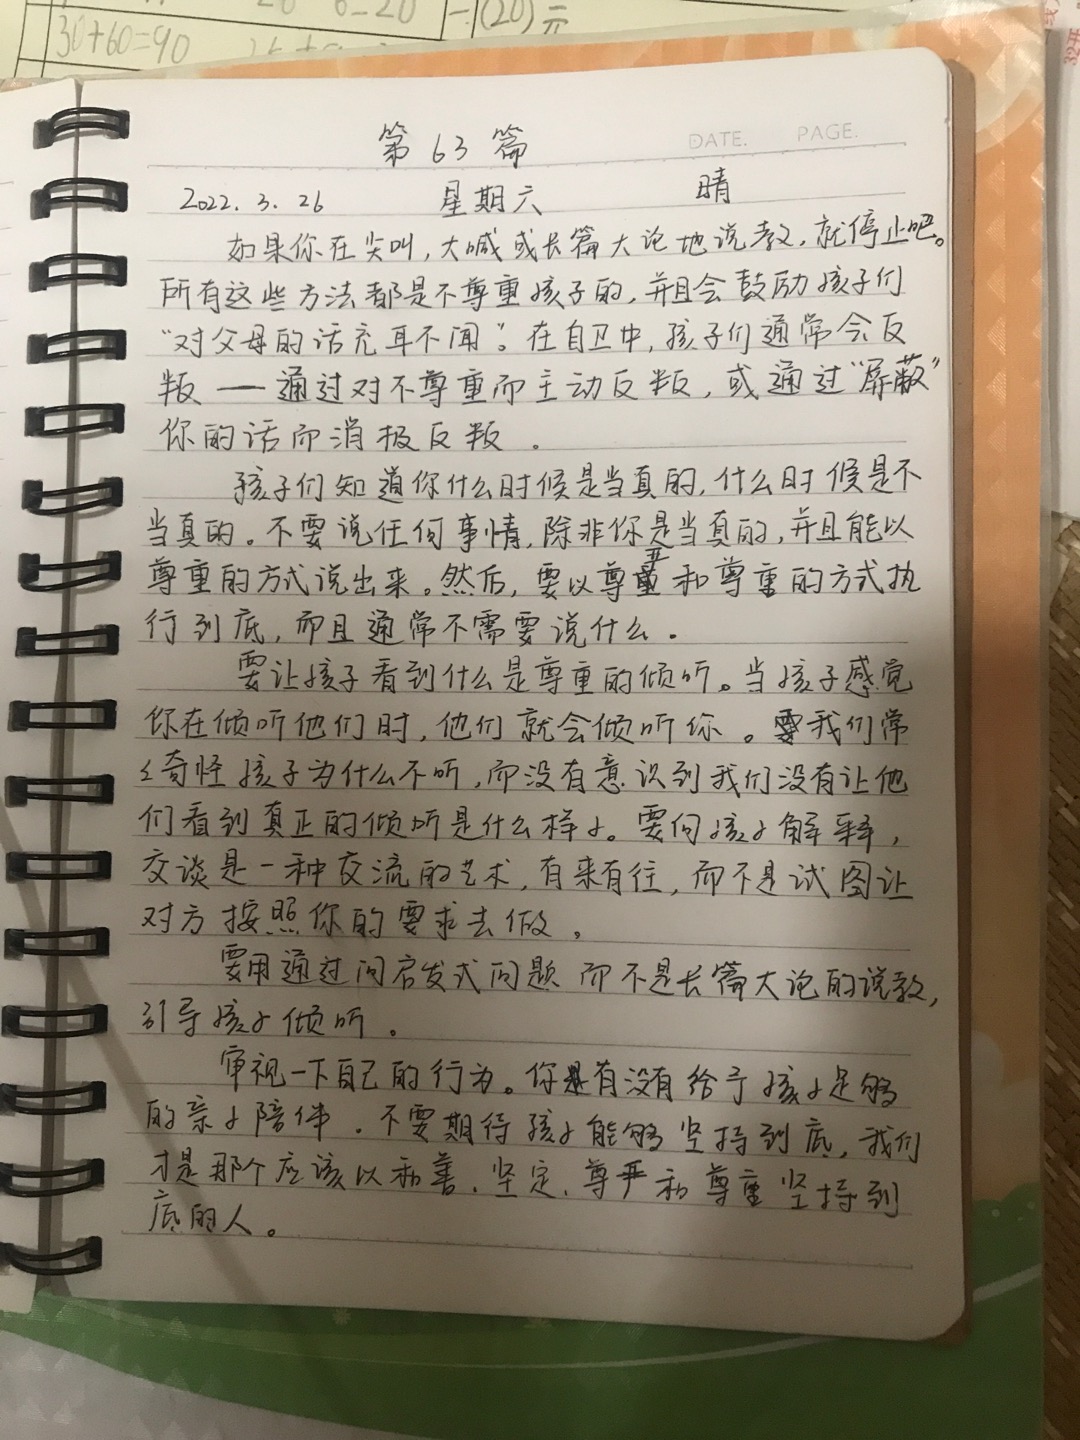 30+60=90
(20)元
第63篇
DATE. PAGE.
2022.3.26 星期六 晴
如果你在尖叫,大喊或长篇大论地说教,就停止吧。
所有这些方法都是不尊重孩子的,并且会鼓励孩子们
“对父母的话充耳不闻”。在自卫中,孩子们通常会反
叛——通过对不尊重而主动反叛,或通过“屏蔽”
你的话而消极反叛。
孩子们知道你什么时候是当真的,什么时候是不
当真的。不要说任何事情,除非你是当真的,并且能以
尊重的方式说出来。然后,要以尊严和尊重的方式执
行到底,而且通常不需要说什么。
要让孩子看到什么是尊重的倾听。当孩子感觉
你在倾听他们时,他们就会倾听你。我们常
々奇怪孩子为什么不听,而没有意识到我们没有让他
们看到真正的倾听是什么样子。要向孩子解释,
交谈是一种交流的艺术,有来有往,而不是试图让
对方按照你的要求去做。
要用通过问启发式问题而不是长篇大论的说教,
引导孩子倾听。
审视一下自己的行为。你有没有给予孩子足够
的亲子陪伴.不要期待孩子能够坚持到底,我们
才是那个应该以和善、坚定、尊严和尊重坚持到
底的人。